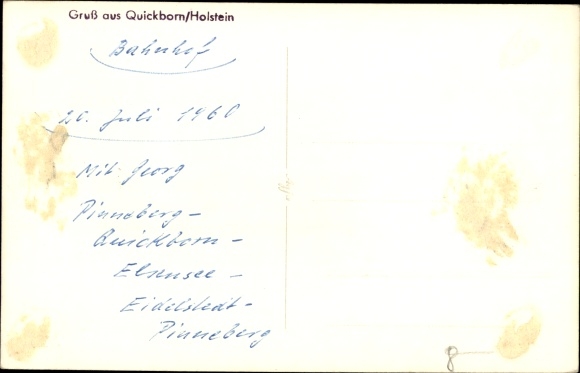 Gruß aus Quickborn/Holstein
Bahnhof
20. Juli 1960
Mit Georg
Pinneberg-
Quickborn-
Elsensee-
Eidelstedt-
Pinneberg